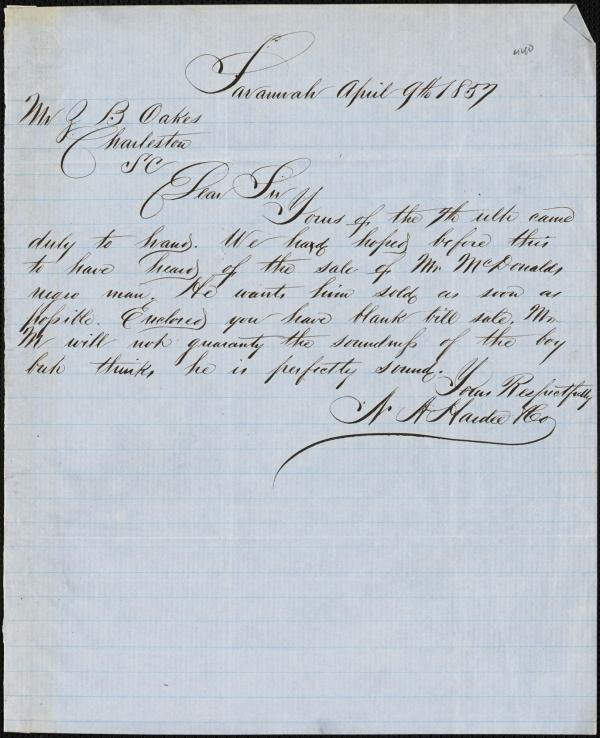 440
Savannah April 9th 1857
Mr Z B Oakes
Charleston
SC
Dear Sir
Yours of the 7th ulth came
duly to hand. We had hoped before this
to have heard of the sale of Mr McDonalds
negro man. He wants him sold as soon as
possible. Enclosed you have blank bill sale, Mr
M will not guaranty the soundness of the boy
but thinks he is perfectly sound.
Yours Respectfully
N A Hardee & Co